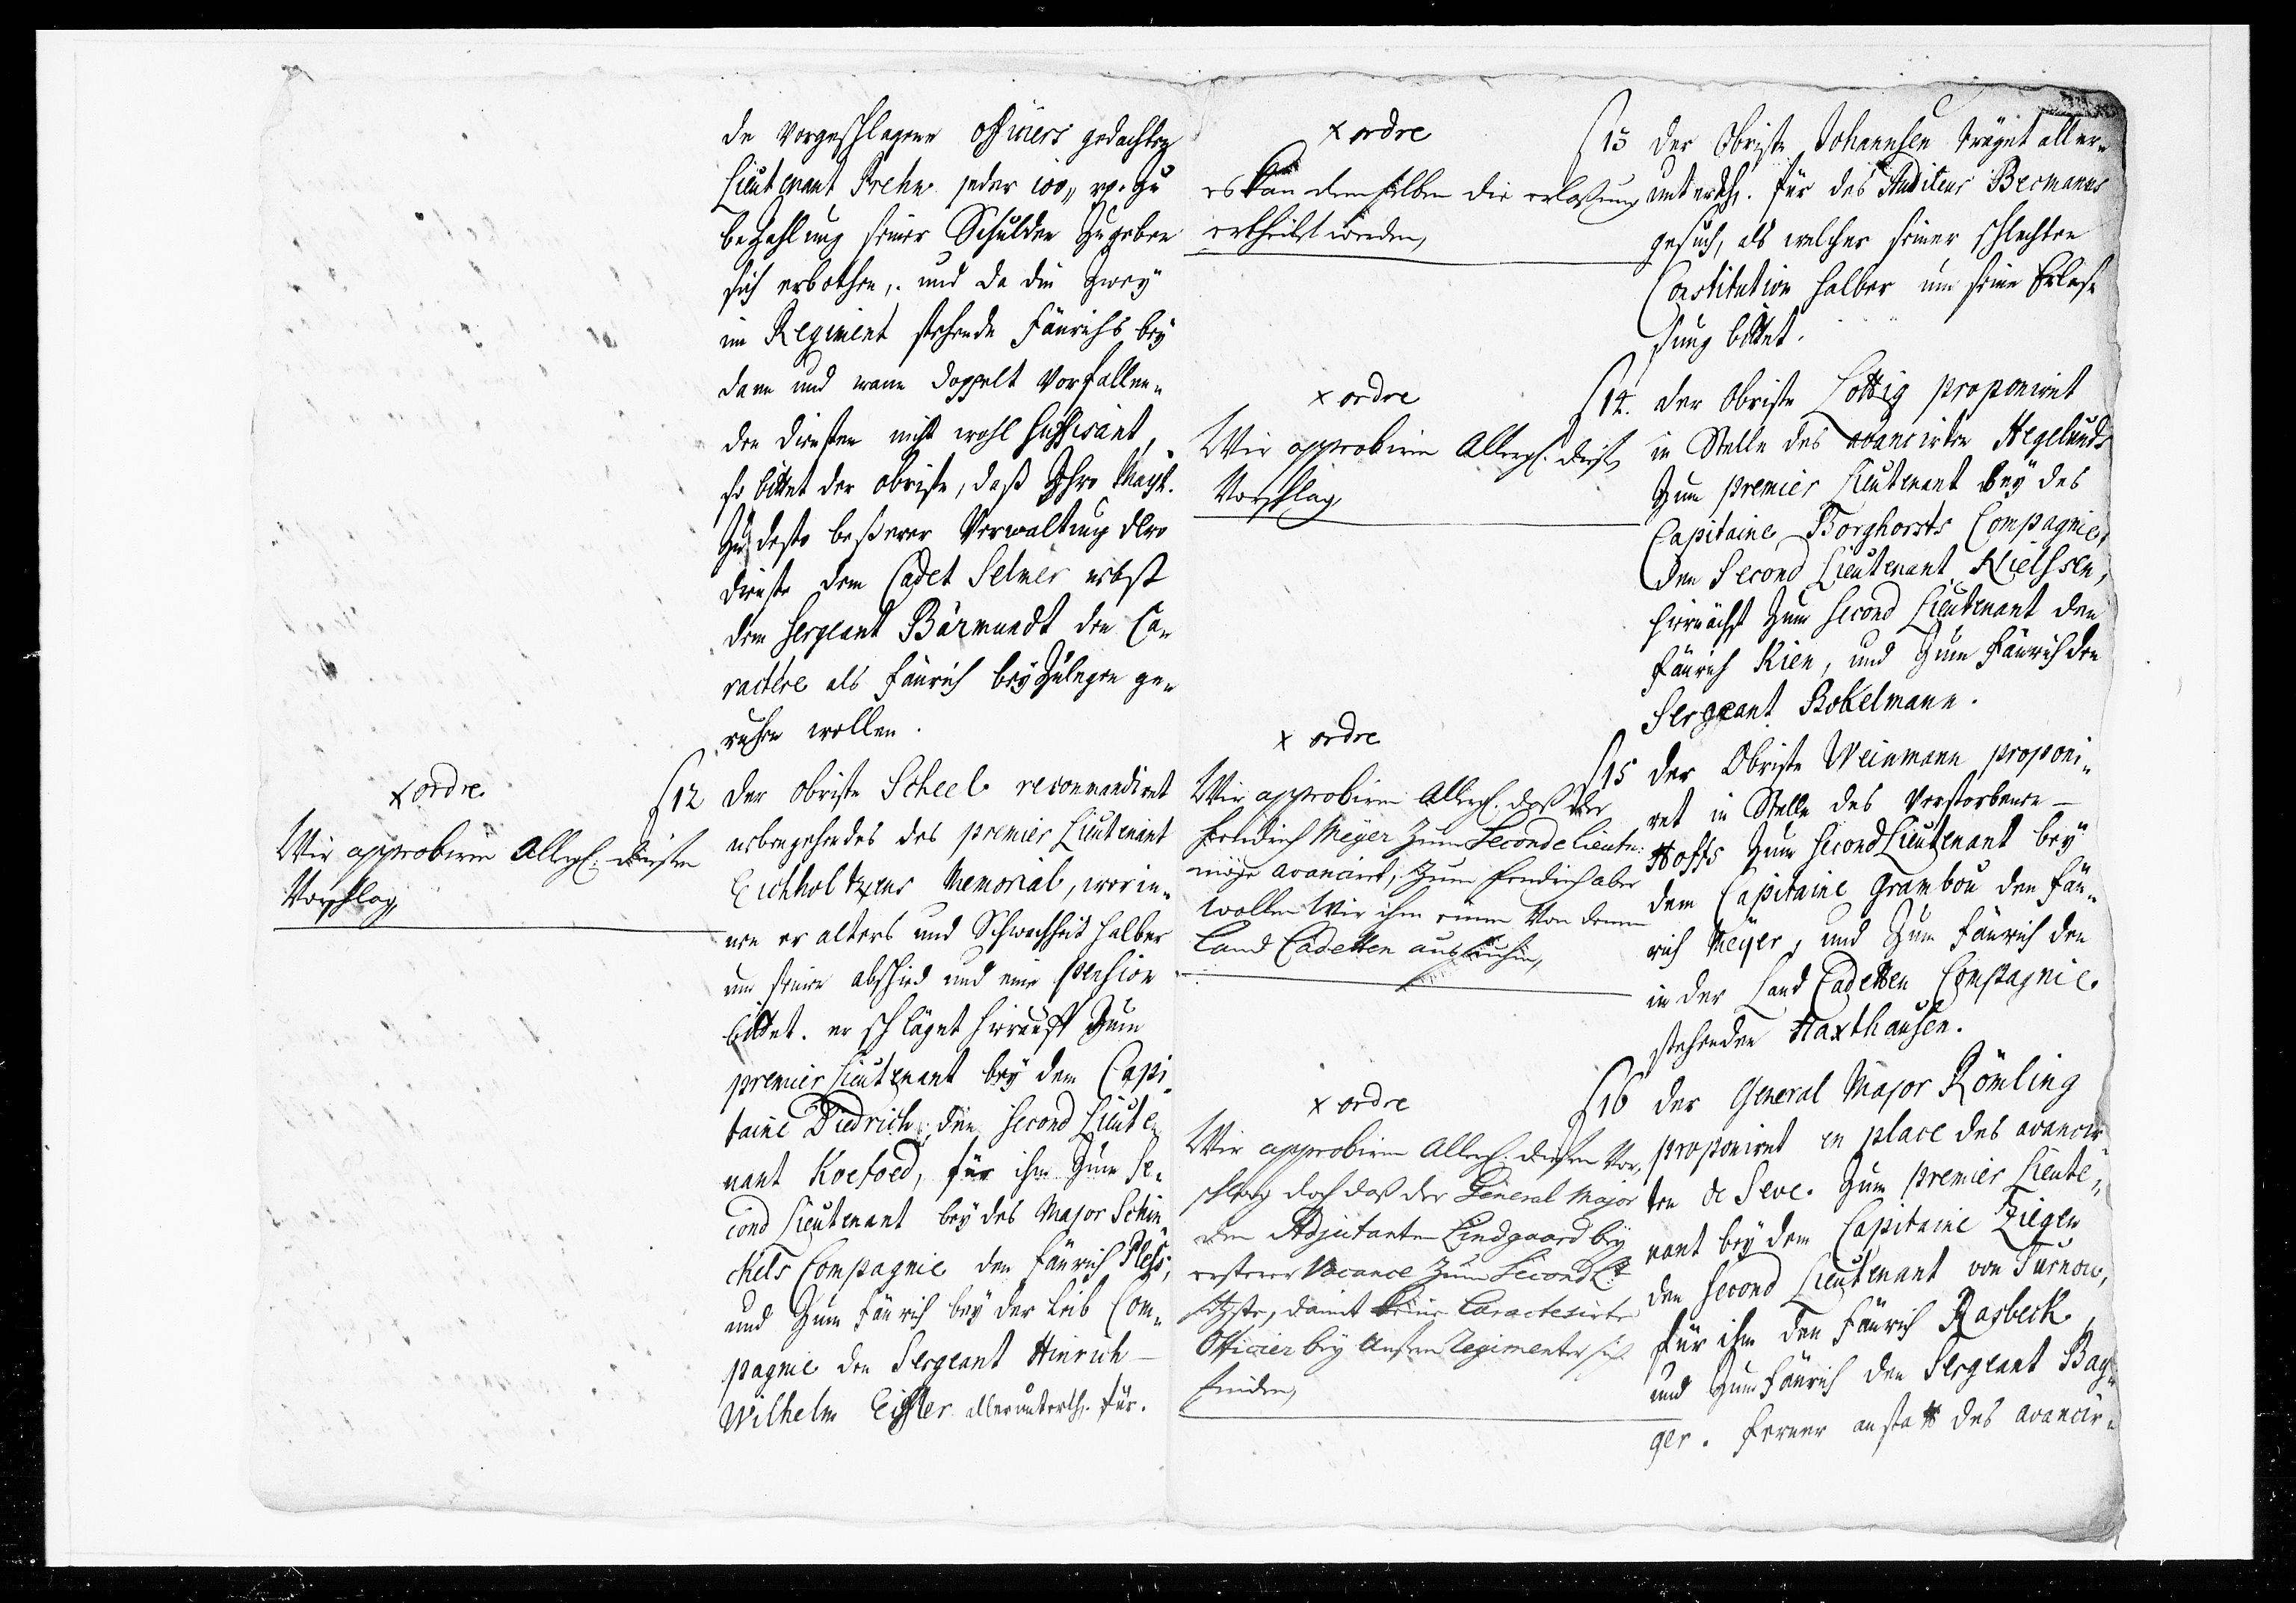 de vorgeschlagene officiers gedachten
Lieutenant Prehn jeder 100,, rp. zu
bezahlung seiner Schulden zugeben
sich erbothen, und da die zwey
im Regiment stehende Fänrichs bey
dann und wann doppelt vorfallen¬
den diensten nicht wohl suffisant,
so bittet der obriste, daß Ihro Mayt.
zu desto beßerer Verwaltung dero
dienste dem Cadet Selmer nebst
dem Sergeant Bärmandt den Ca¬
ractere als Fänrich beyzulegen ge¬
ruhen wollen.
x ordre
Wir approbiren Allergh. diesen
Vorschlag,
§12 der obriste Scheel recommandiret
nebengehendes des premier Lieutenant
Eichholtzens Memorial, worin¬
nen er alters und Schwachheit halber
um seinen abschied und eine pension
bittet. er schläget hierauff zum
premier Lieutenant bey dem Capi¬
taine Diedrich, den Second Lieute¬
nant Koefoed, für ihm zum Se¬
cond Lieutenant bey des Major Schin¬
ckels Compagnie den Fänrich Pless,
und zum Fänrich bey der Leib Com¬
pagnie den Sergeant Hinrich
Wilhelm Eichler allerunterth. für.
x ordre
es kan demselben die erlaßung
ertheilet werden,
§13 der Obriste Johannsen träget aller¬
unterth. für des Auditeur Becmanns
gesuch, als welcher seiner schlechten
Constitution halber um seine Erlas¬
sung bittet.
x ordre
Wir approbiren Allergh. diesen
Vorschlag,
§14. der Obriste Lottig proponiret
in Stelle des avancirten Hegelunds
zum premier Lieutenant bey des
Capitaine Borghorsts Compagnie,
den Second Lieutenant Nielssen,
hiernächst zum Second Lieutenant den
Fänrich Kien, und zum Fänrich den
Sergeant Bokelmann.
x ordre
Wir approbiren Allergh. daß der
Fendrich Meyer zum Seconde Lieutn.
möge avanciret, zum Fendrich aber
wollen Wir ihm einen von denen
Land Cadetten aussuchen,
§15 der Obriste Weinmann proponi¬
ret in Stelle des verstorbenen
Hoffs zum Second Lieutenant bey
dem Capitaine Grambou den Fän¬
rich Meyer, und zum Fänrich den
in der Land Cadetten Compagnie
stehenden Haxthausen.
x ordre
Wir approbiren Allergh. diesen Vor¬
schlag doch daß der General Major
den Adjutanten Lindgaard bey
ersterer Vacance zum Second Lt.
setzte, damit keine Caracterisirte
Officier bey Unsern Regimenter sich
finden,
§16 der General Major Römling
proponiret en place des avancir¬
ten de Seve. zum premier Lieute¬
nant bey dem Capitaine Ziegen
den Second Lieutenant von Turnow,
für ihm den Fänrich Rasbeck,
und zum Fänrich den Sergeant Bay¬
ger. ferner anstatt des avancir¬